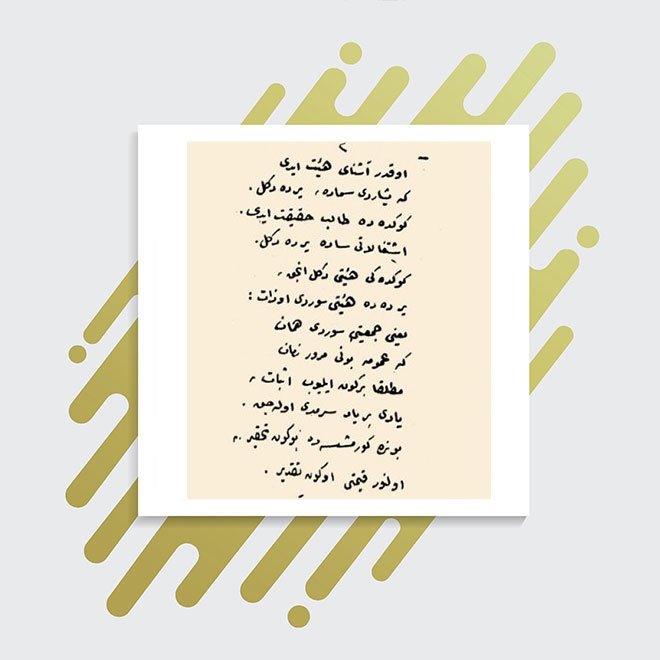 ٢
اوقدر آشنای هیئت ایدی
که یشاردی سماده، یرده دکل.
کوکده ده طالب حقیقت ایدی.
اشتغالاتی ساده یرده دکل.
کوکده کی هیئتی دکل انجق،
یرده ده هیئتی سوردی اوذات:
یعنی جمعیتی سوردی همان
که عمومه بونی مرور زمان
مطلقا برکون ایلیوب اثبات،
یادی بر یاد سرمدی اوله جق.
بوکون تحقیر
اولنور قیمتی اوکون تقدیر.